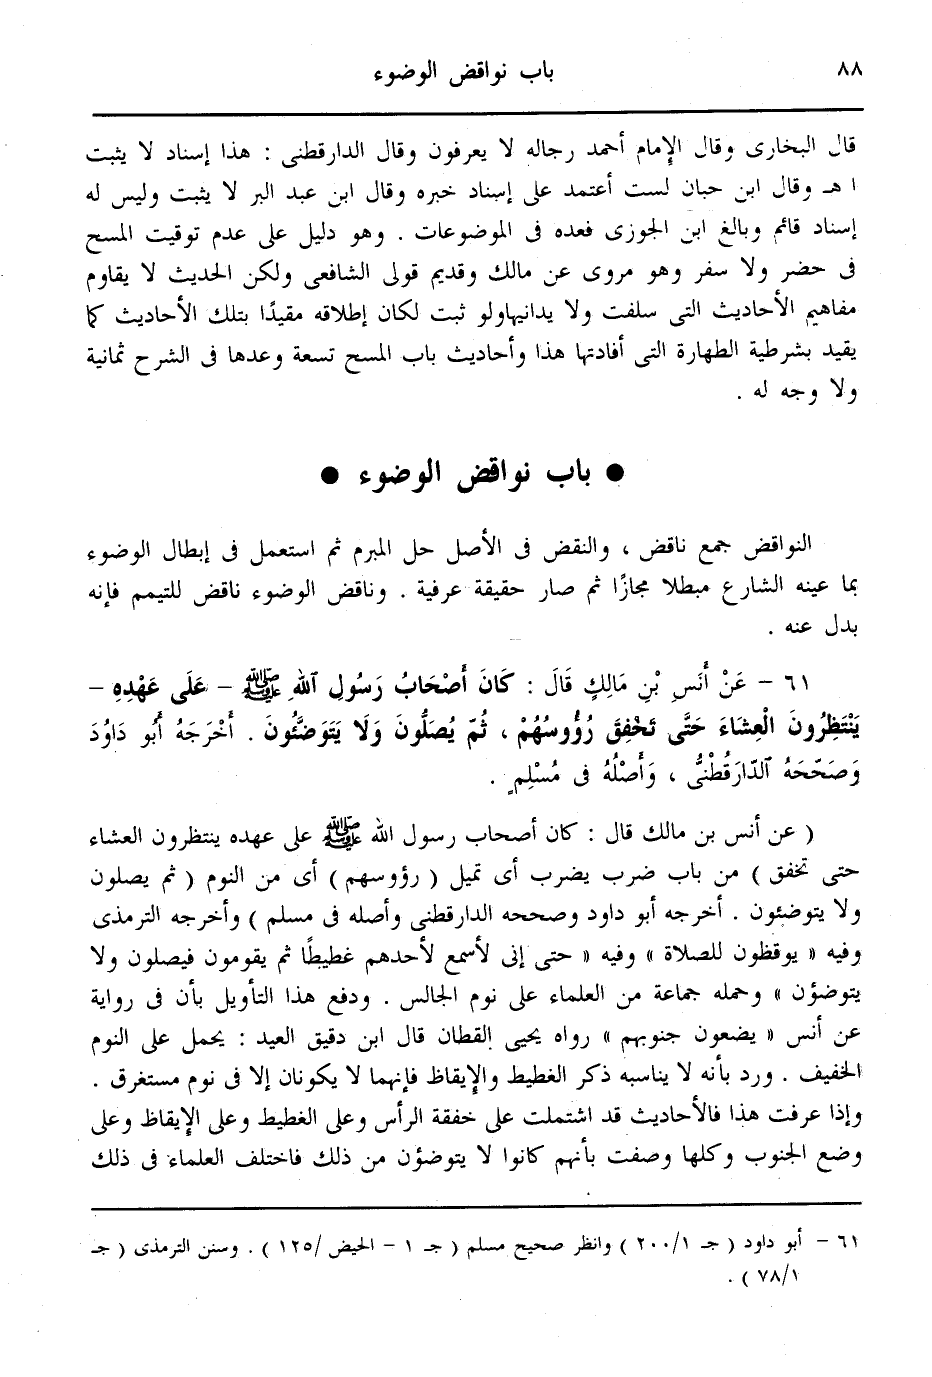 ٨٨ باب نواقض الوضوء
قال البخارى وقال الإمام أحمد رجاله لا يعرفون وقال الدارقطنى : هذا إسناد لا يثبت
ا هـ وقال ابن حبان لست أعتمد على إسناد خبره وقال ابن عبد البر لا يثبت وليس له
إسناد قائم وبالغ ابن الجوزى فعده فى الموضوعات . وهو دليل على عدم توقيت المسح
فى حضر ولا سفر وهو مروى عن مالك وقديم قولى الشافعى ولكن الحديث لا يقاوم
مفاهيم الأحاديث التى سلفت ولا يدانيهاولو ثبت لكان إطلاقه مقيدًا بتلك الأحاديث كما
يقيد بشرطية الطهارة التى أفادتها هذا وأحاديث باب المسح تسعة وعدها فى الشرح ثمانية
ولا وجه له .
● باب نواقض الوضوء ●
النواقض جمع ناقض ، والنقض فى الأصل حل المبرم ثم استعمل فى إبطال الوضوء
بما عينه الشارع مبطلا مجازًا ثم صار حقيقة عرفية . وناقض الوضوء ناقض للتيمم فإنه
بدل عنه .
٦١ – عَنْ أَنَسِ بْنِ مَالِكٍ قَالَ : كَانَ أَصْحَابُ رَسُولِ اللهِ ﷺ – عَلَى عَهْدِهِ –
يَنْتَظِرُونَ الْعِشَاءَ حَتَّى تَخْفِقَ رُؤُوسُهُمْ ، ثُمَّ يُصَلُّونَ وَلَا يَتَوَضَّئُونَ . أَخْرَجَهُ أَبُو دَاوُدَ
وَصَحَّحَهُ الدَّارَقُطْنِىُّ ، وَأَصْلُهُ فِى مُسْلِمٍ .
( عن أنس بن مالك قال : كان أصحاب رسول الله ﷺ على عهده ينتظرون العشاء
حتى تخفق ) من باب ضرب يضرب أى تميل ( رؤوسهم ) أى من النوم ( ثم يصلون
ولا يتوضئون . أخرجه أبو داود وصححه الدارقطنى وأصله فى مسلم ) وأخرجه الترمذى
وفيه « يوقظون للصلاة » وفيه « حتى إنى لأسمع لأحدهم غطيطًا ثم يقومون فيصلون ولا
يتوضؤن » وحمله جماعة من العلماء على نوم الجالس . ودفع هذا التأويل بأن فى رواية
عن أنس « يضعون جنوبهم » رواه يحيى القطان قال ابن دقيق العيد : يحمل على النوم
الخفيف . ورد بأنه لا يناسبه ذكر الغطيط والإيقاظ فإنهما لا يكونان إلا فى نوم مستغرق .
وإذا عرفت هذا فالأحاديث قد اشتملت على خفقة الرأس وعلى الغطيط وعلى الإيقاظ وعلى
وضع الجنوب وكلها وصفت بأنهم كانوا لا يتوضؤن من ذلك فاختلف العلماء فى ذلك
٦١ – أبو داود ( جـ ٢٠٠/١ ) وانظر صحيح مسلم ( جـ ١ – الحيض /١٢٥ ) . وسنن الترمذى ( جـ
٧٨/١ ) .